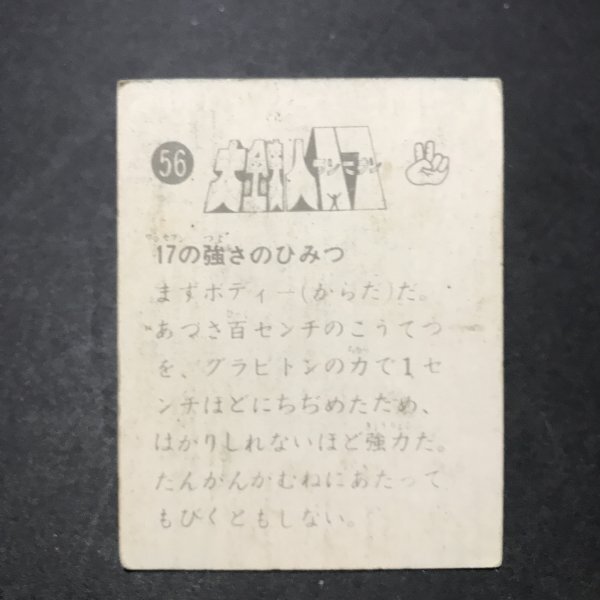 56
大鉄人17
ワンセブン
17の強さのひみつ
まずボディー(からだ)だ。
あつさ百センチのこうてつ
を、グラビトンの力で1セ
ンチほどにちぢめたため、
はかりしれないほど強力だ。
たんがんかむねにあたって
もびくともしない。